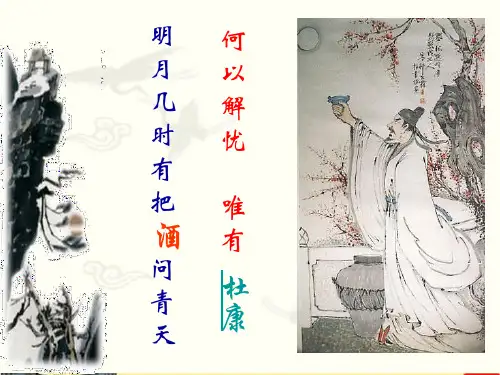 何以解忧 唯有杜康
明月几时有把酒问青天